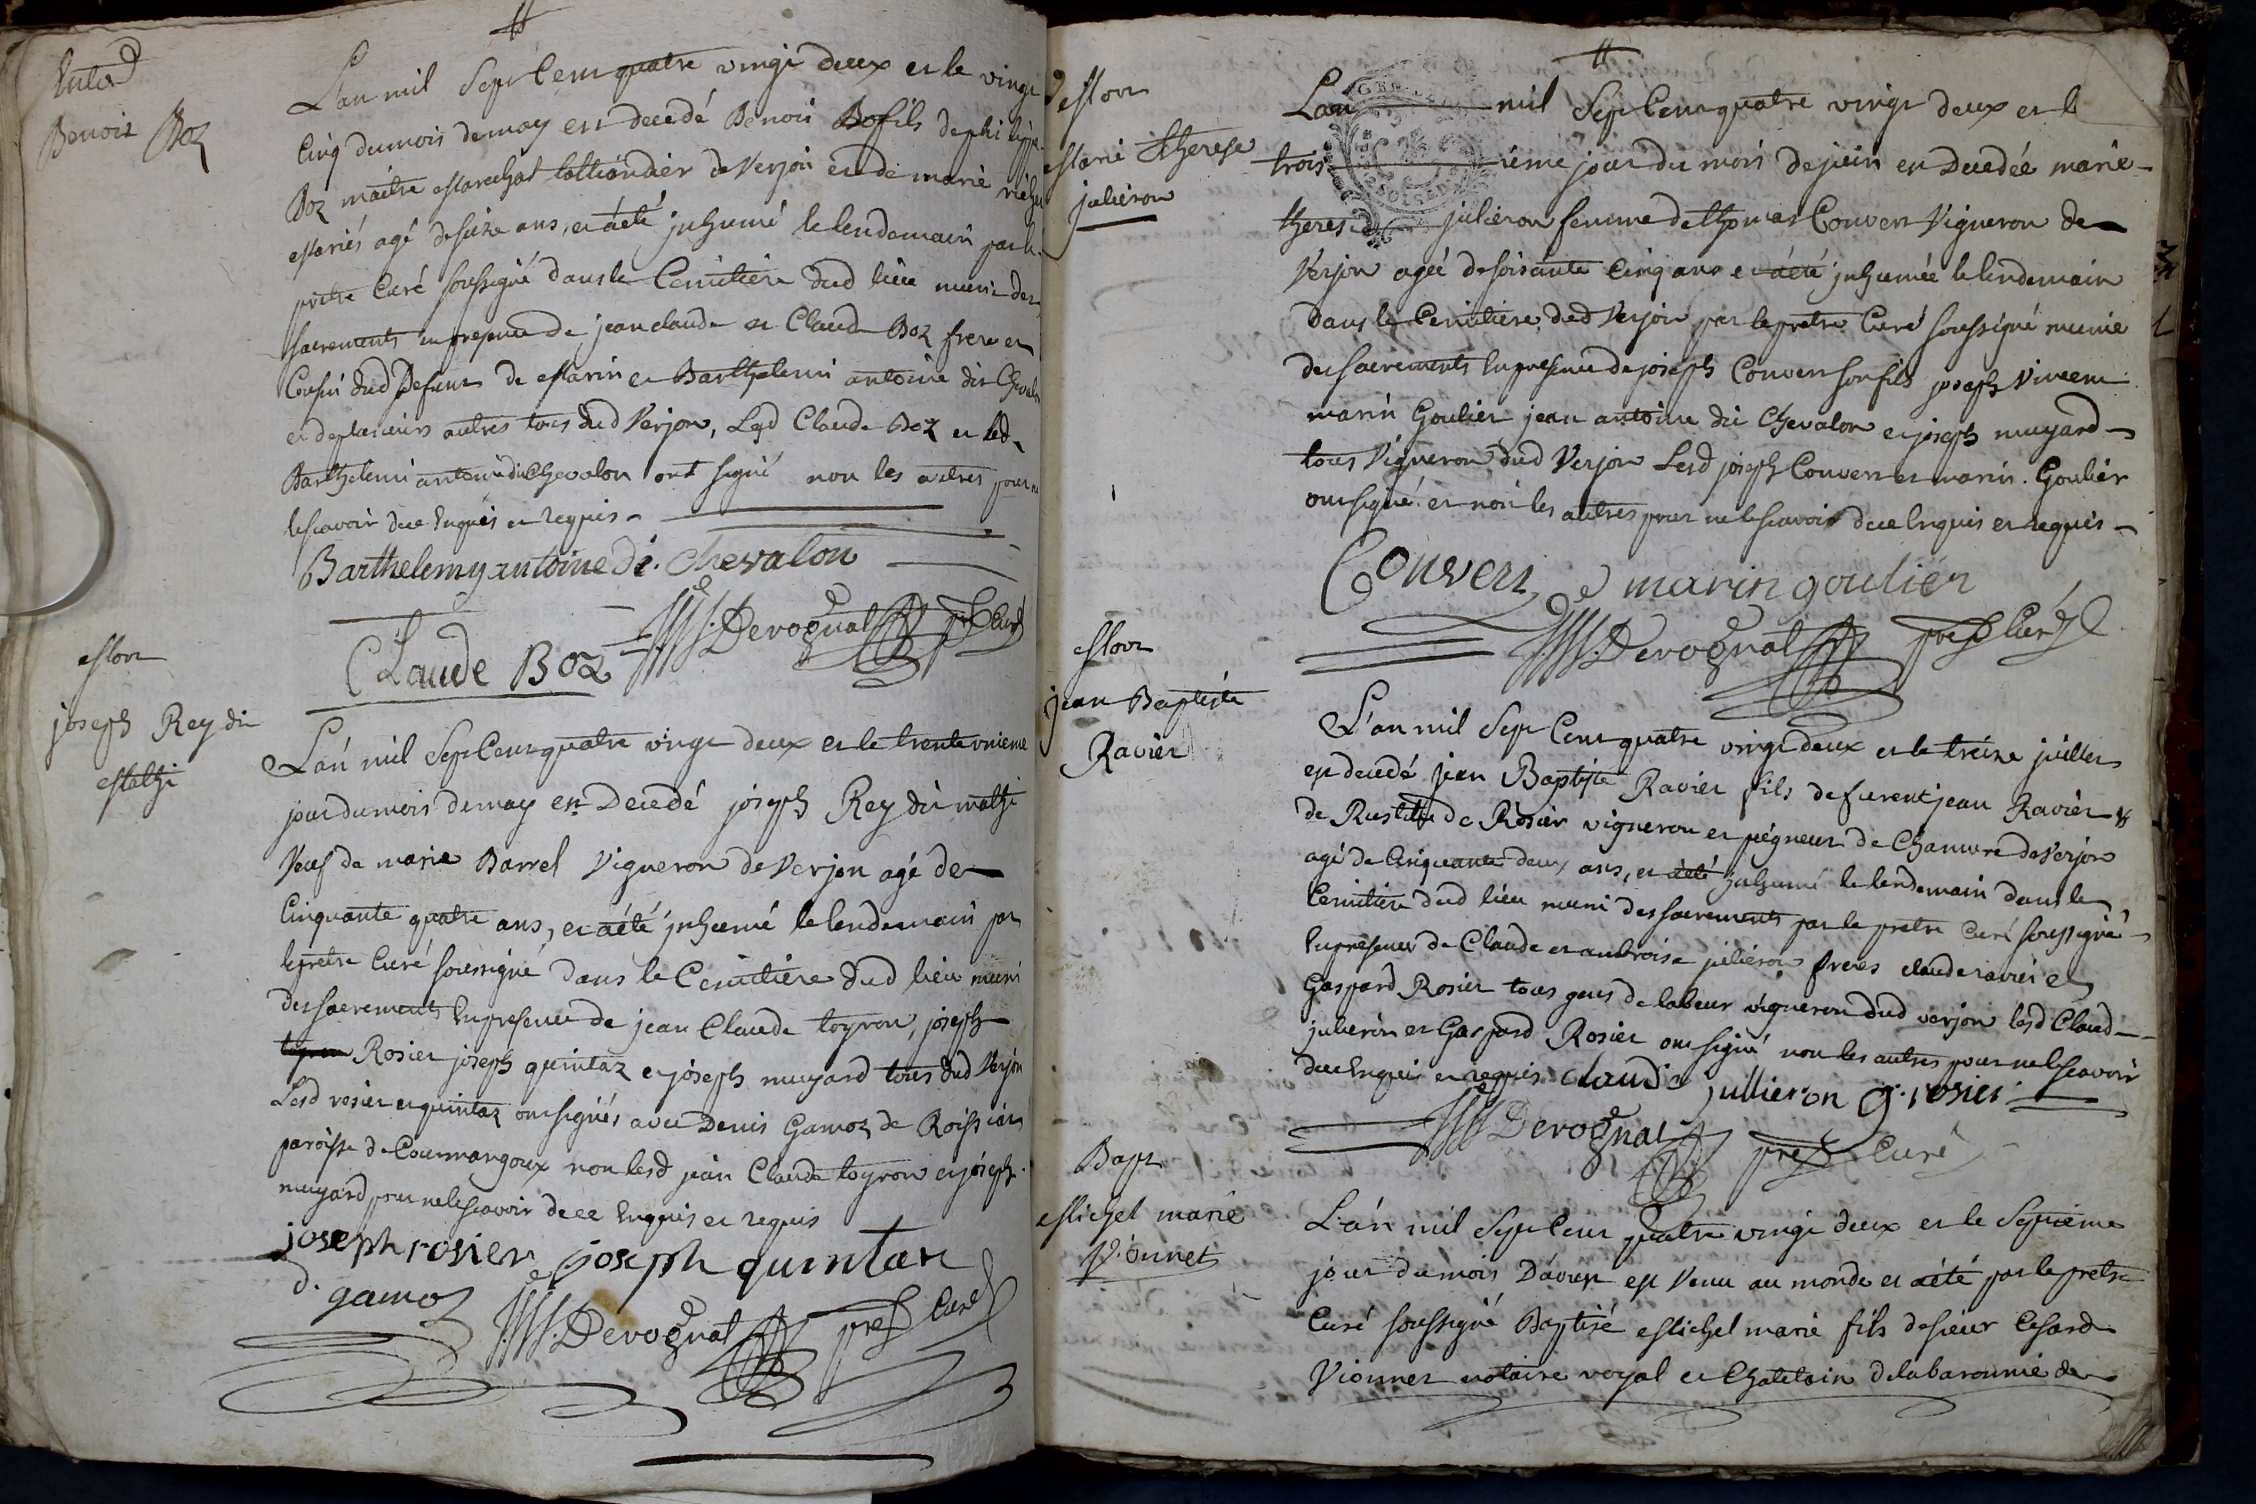 Enterr
Benoit Boz
L'an mil Sept Cent quatre vingt deux et le vingt
Cinq du mois de may est decedé Benoit Bo fils de philippe
Boz maitre Marechal taillandier de Verjon et de marie
Mariés agé de seize ans, et a été inhumé le lendemain par le
prêtre Curé soussigné dans le Cemitiere dud lieu muni des
sacrements en presence de jean claude et Claude Boz frere et
Cousin dud Defunt de Marin et Barthelemi antoine dit Cheval
et de plusieurs autres tous dud Verjon, Led Claude Boz et led
Barthelemi antoine dit Chevalon ont signé non les autres pour ne
le scavoir de ce Enquis et requis
Barthelemy antoine di. Chevalon
Claude Boz
Devognat pre Curé
Mort
joseph Rey dit
Mathi
L'an mil Sept Cent quatre vingt deux et le trente unieme
jour du mois de may est Decedé joseph Rey dit mathi
Veuf de marie Barrel Vigneron de Verjon agé de
Cinquante quatre ans, et a été inhumé le lendemain par
le prêtre Curé soussigné dans le Cemitiere dud lieu muni
des sacrements En presence de jean Claude toyron, joseph
toyron Rosier joseph quintaz et joseph muyard tous dud Verjon
Lesd rosier et quintaz ont signés avec Denis Gamoz de Roissiat
paroisse de Courmangoux non lesd jean Claude toyron et joseph
muyard pour ne le scavoir de ce Enquis et requis
joseph rosier joseph quintan
d. gamoz
Devognat pre Curé
Mort
Marie Therese
julieron
L'an mil Sept Cent quatre vingt deux et le
trois ieme jour du mois de juin est Decedée marie
therese julieron femme de thomas Convert Vigneron de
Verjon agée de soisante Cinq ans et a été inhumée le lendemain
Dans le Cemitiere dud Verjon par le pretre Curé soussigné munie
des sacrements En presence de joseph Convert son fils joseph Vincent
marin Goulier jean antoine dit Chevalon et joseph muyard
tous Vigneron dud Verjon Lesd joseph Convert et marin Goulier
ont signé et non les autres pour ne le scavoir de ce Enquis et requis
Convert marin goulier
Devognat pre Curé
Mort
jean Baptiste
Ravier
L'an mil Sept Cent quatre vingt deux et le treize juillet
est decedé jean Baptiste Ravier fils de furent jean Ravier &
de Rosier vigneron et pégneur de Chanvre de Verjon
agé de Cinquante deux ans, et a été inhumé le lendemain dans le
Cemitiere dud lieu muni des sacrements par le pretre Curé soussigné
En presence de Claude et ambroise julieron freres claude ravier et
Gaspard Rosier tous gens de labeur vigneron dud verjon lesd Claud
julieron et Gaspard Rosier ont signé non les autres pour ne le scavoir
de ce Enquis et requis claude jullieron g. rosier
Devognat pre Curé
Bapt
Michel marie
Vionnet
L'an mil Sept Cent quatre vingt deux et le Septieme
jour du mois D'aoust est Venu au monde et a été par le pretre
Curé soussigné Baptisé Michel marie fils de sieur Cesard
Vionnet notaire royal et Chatelain de la baronnie de